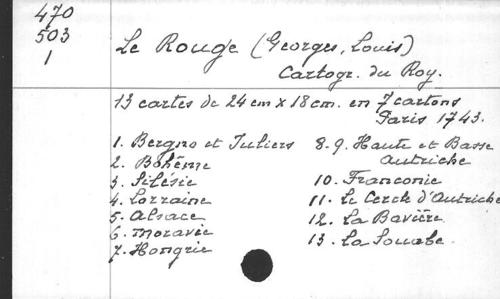 470
503
1
Le Rouge (Georges, Louis)
Cartogr. du Roy.
13 cartes de 24 cm x 18 cm. en 7 cartons
Paris 1743.
1. Bergns et Juliers
2. Bohême
3. Silésie
4. Lorraine
5. Alsace
6. Moravie
7. Hongrie
8-9. Haute et Basse
Autriche
10. Franconie
11. Le Cercle d'Autriche
12. La Bavière
13. La Souabe.